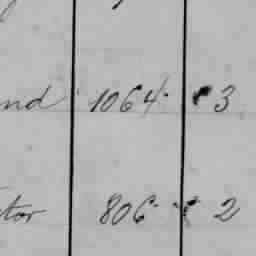 nd 1064 3
tor 806 2